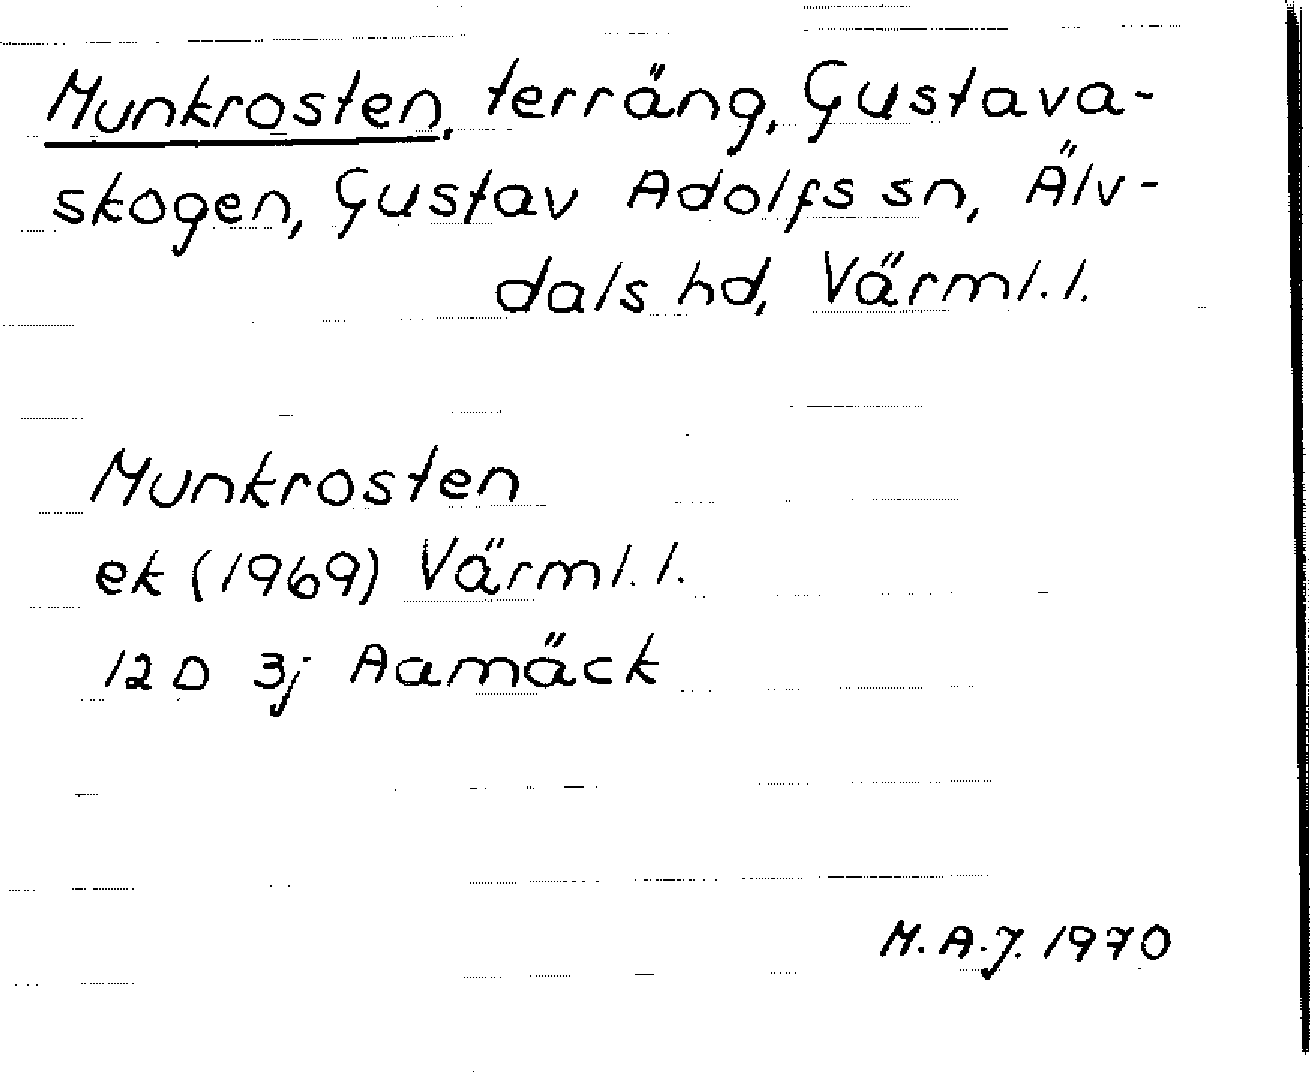 Munkrosten, terräng, Gustava-
skogen, Gustav Adolfs sn, Älv-
dals hd, Värml. l.
Munkrosten
ek (1969) Värml. l.
12 D 3j Aamäck
M.A.J. 1970